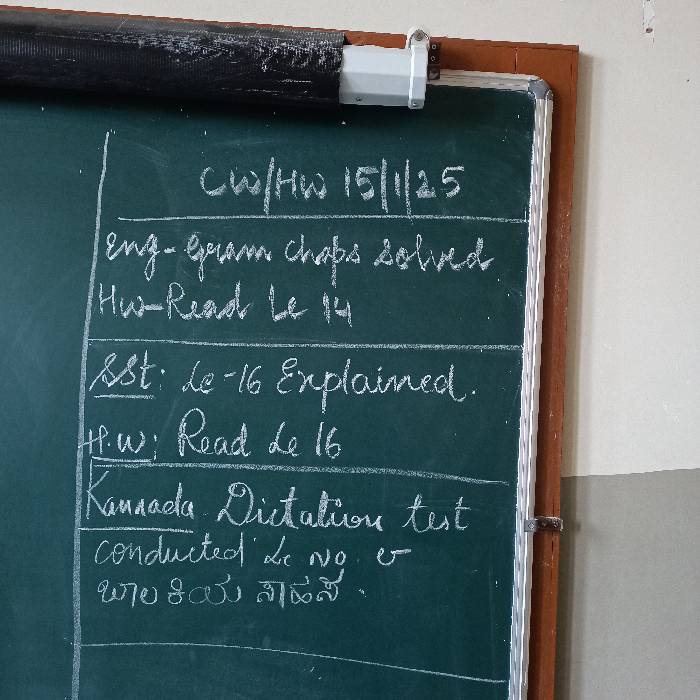 CW/HW 15/1/25
Eng- Gram chaps solved
Hw-Read Le 14
SSt: Le-16 Explained.
H.W: Read Le 16
Kannada Dictation test
conducted Le No. ೮
ಬಾಲಕಿಯ ಸಾಹಸ.